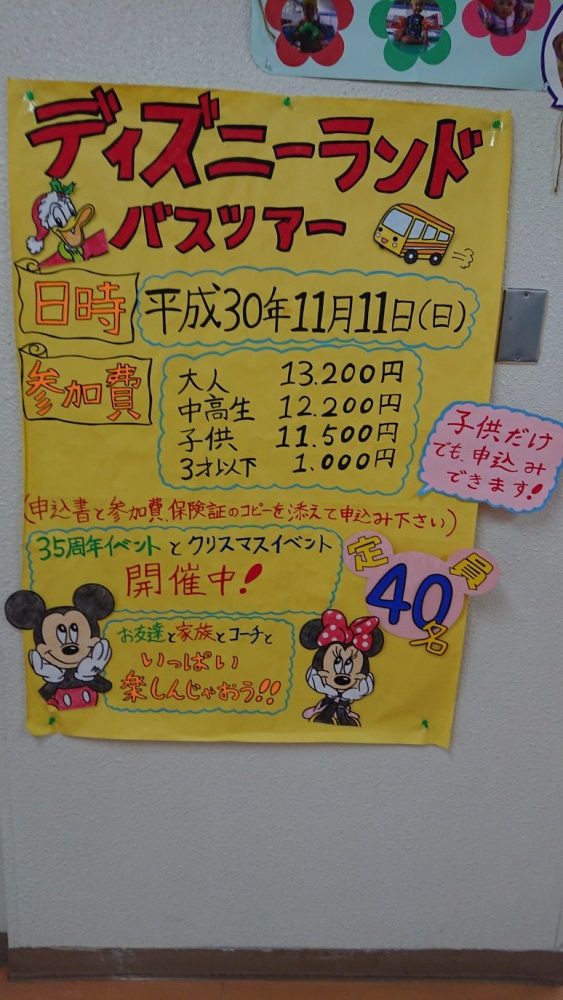 ディズニーランド
バスツアー
日時
平成30年11月11日(日)
参加費
大人 13.200円
中高生 12.200円
子供 11.500円
3才以下 1.000円
子供だけ
でも、申込み
できます!
(申込書と参加費、保険証のコピーを添えて申込み下さい)
35周年イベントとクリスマスイベント
開催中!
定員
40名
お友達と家族とコーチと
いっぱい
楽しんじゃおう!!